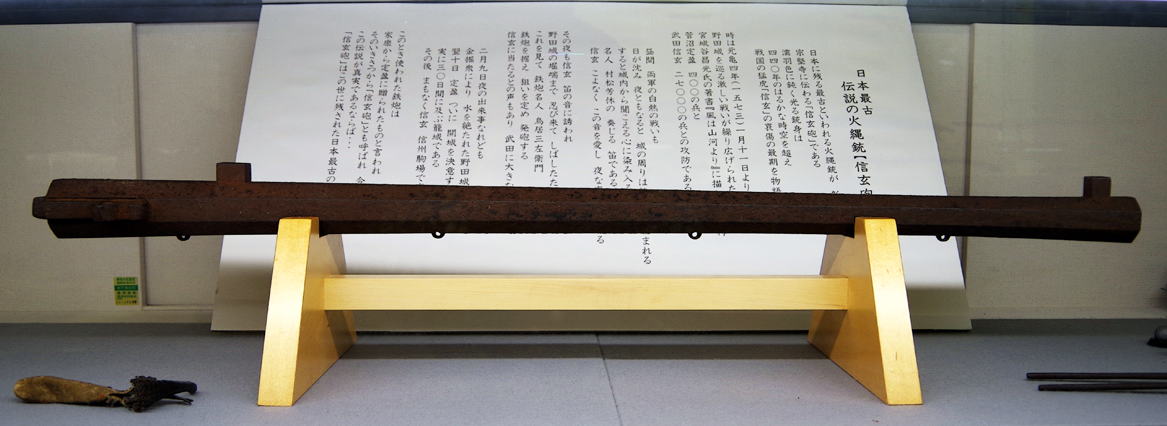 日本最古
伝説の火縄銃【信玄砲
日本に残る最古といわれる火縄銃が
宗堅寺に伝わる「信玄砲」である
濡羽色に鈍く光る銃身は
四四〇年のはるかな時空を超え
戦国の猛虎「信玄」の哀傷の最期を物語
時は元亀四年(一五七三)一月十一日より
野田城を巡る激しい戦いが繰り広げられた
宮城谷昌光氏の著書『風は山河より』に描
菅沼定盈 四〇〇の兵と
武田信玄 二七〇〇〇の兵との攻防である
昼間 両軍の白熱の戦いも
日が沈み 夜ともなると 城の周りは
まれる
すると城内から聞こえる心に染み入る
名人 村松芳休の 奏じる 笛である
信玄 こよなく この音を愛し 夜な
る
その夜も信玄 笛の音に誘われ
野田城の堀端まで 忍び来て しばしたた
これを見て 鉄炮名人 鳥居三左衛門
鉄炮を握え 狙いを定め 発砲する
信玄に当たるとの声もあり 武田に大き
二月九日夜の出来事なれども
金掘衆により 水を絶たれた野田城
翌十日 定盈 ついに 開城を決意す
実に三〇日間に及ぶ籠城である
その後 まもなく信玄 信州駒場で
このとき使われた鉄炮は
家康から定盈に贈られたものと言われ
そのいきさつから「信玄砲」とも呼ばれ 今
この伝説が真実であるならば・・・
「信玄砲」はこの世に残された日本最古の